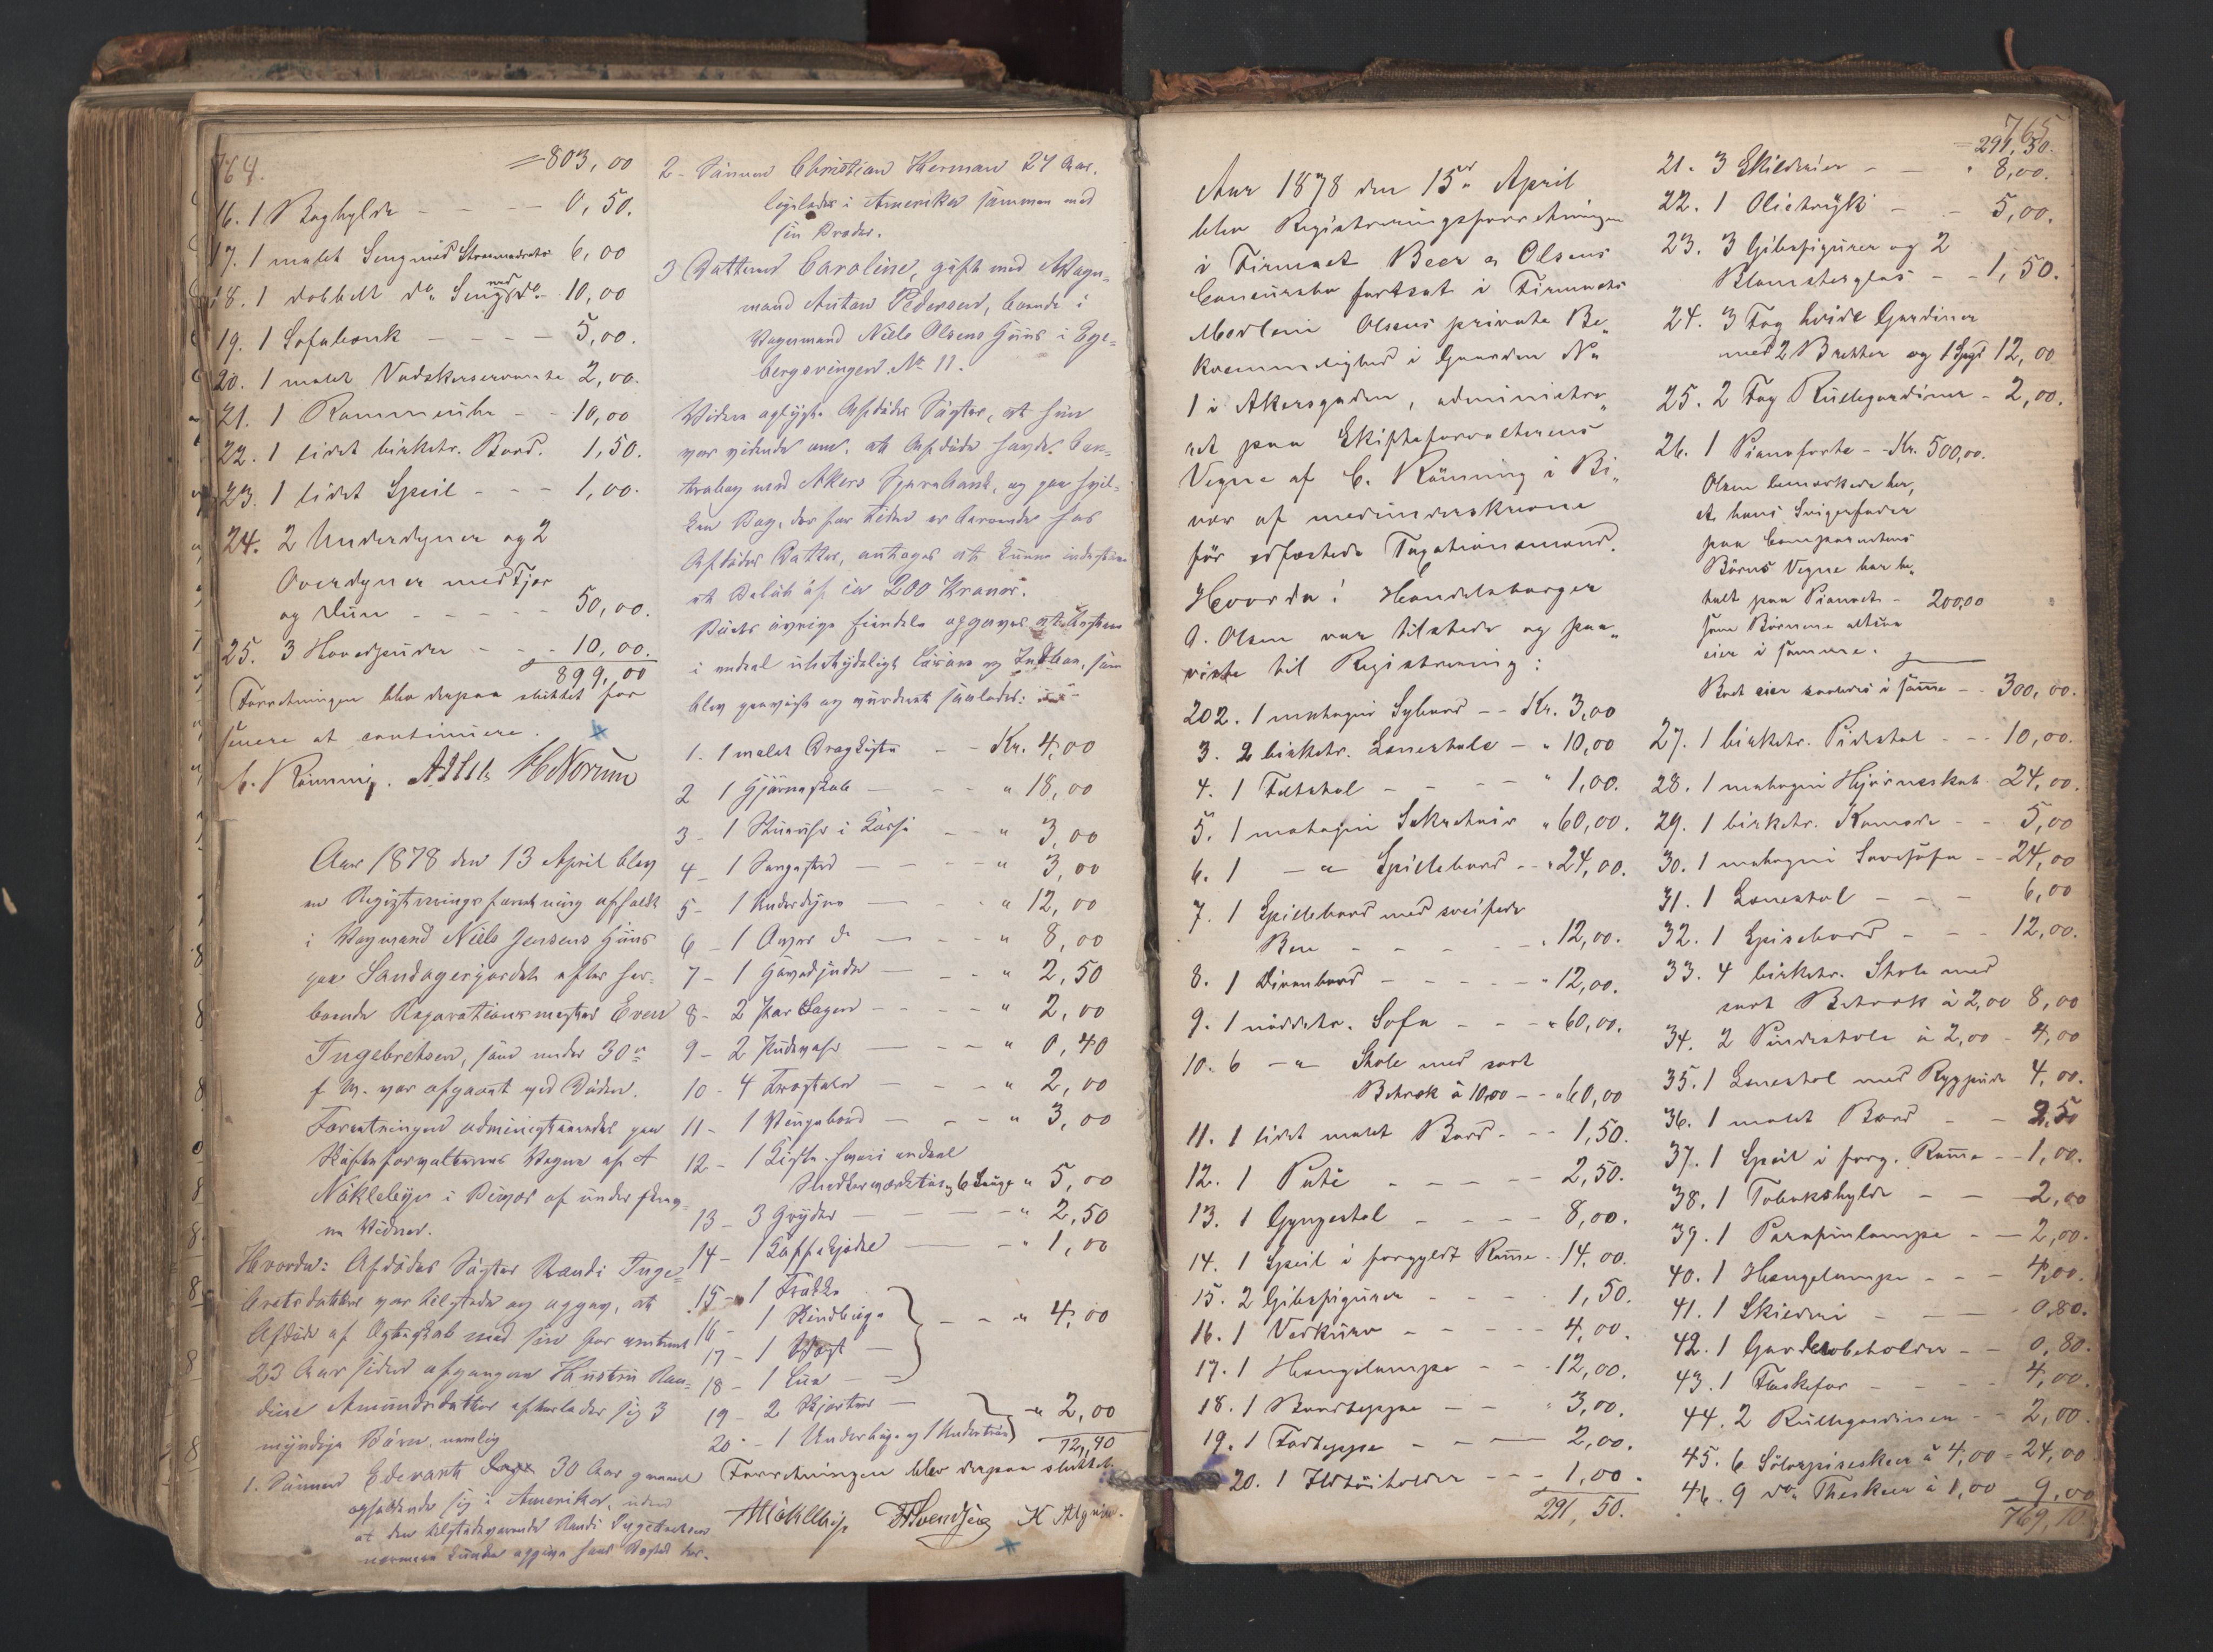 764.
= 803,00
16. 1 Baghylde - - - 0,50.
17. 1 malet Seng med Straamadrats 6,00
18. 1 dobbelt do Seng med do 10,00
19. 1 Sofabænk - - - - 5,00.
20. 1 malet Vadskeservante 2,00.
21. 1 Rammeuhr - - 10,00
22. 1 lidet birketr. Bord. 1,50.
23. 1 lidet Speil - - - 1,00.
24. 2 Underdyner og 2
Overdyner med Fjær
og Duun - - - - 50,00.
25. 3 Hovedpuder - - - 10,00.
899,00
Forretningen blev derpaa sluttet for
senere at continuere.
C. Rönning. H Norum
Aar 1878 den 13 April blev
en Registreringsforretning afholdt
i Vognmand Niels Jensens Huus
paa Sandagerjordet efter her-
boende Reparationsmester Even
Ingebretsen, som under 30te
f. M. var afgaaet ved Döden.
Forretningen administreredes paa
Skifteforvalterens Vegne af A
Nökleby i Bivær af underskrev-
ne Vidner.
Hvorda: Afdödes Söster Randi Inge-
bretsdatter var tilstede og opgav, at
Afdöde af Ægteskab med sin for omtrent
23 Aar siden afgangne Hustru Ran-
dine Amundsdatter efterlader sig 3
myndige Börn, nemlig
1. Sönnen Edevart 30 Aar gammel
opholdende sig i Amerika, uden
at den tilstedeværende Randi Ingebretsen
nærmere kunde opgive hans Bosted der.
2 - Sönnen Christian Herman 24 Aar.
ligeledes i Amerika sammen med
sin Broder.
3 Datteren Caroline, gift med Vogn-
mand Anton Pedersen, boende i
Vognmand Niels Olsens Huus i Ege-
bergsvingen No 11.
Videre oplyste Afdödes Söster, at hun
var vidende om, at Afdöde havde Con-
trabog med Akers Sparebank, og paa hvil-
ken Bog, der for tiden er beroende hos
Afdödes Datter, antages at kunne indestaa
et Belöb af ca 200 Kroner.
Boets övrige Eiendele opgaves at bestaa
i endeel ubetydeligt Lösöre og Indbo, som
blev paavist og vurderet saaledes:
1. 1 malet Dragkiste - - Kr. 4,00
2 1 Hjörneskab - - - " 18,00
3 - 1 Stueuhr i Kasse - - " 3,00
4 - 1 Sengested - - - - " 3,00
5 - 1 Underdyne - - - " 12,00
6 - 1 Over do - - - " 8,00
7 - 1 Hovedpude - - - " 2,50
8 - 2 Par Lagen - - - - " 2,00
9 - 2 Pudevar - - - " 0,40
10 - 4 Træstoler - - - " 2,00
11 - 1 Vengebord - - - " 3,00
12 - 1 Kiste hvori endeel
Snedkerværktöi og 6 Sauge " 5,00
13 - 3 Gryder - - - - " 2,50
14 - 1 Kaffekjedel - - - " 1,00
15 - 1 Frakke
16 - 1 Benklæde - - " 4,00
17 - 1 Vest -
18 - 1 Lue - -
19 - 2 Skjorter - - " 2,00
20 - 1 Underbuxe og 1 Undertröie
72,40
Forretningen blev derpaa sluttet.
ANökleby Svendsen
765
= 291,50.
Aar 1878 den 15de April
blev Registreringsforretningen
i Firmaet Beer & Olsens
Concursbo fortsat i Firmaets
Medlem Olsens private Be-
kvemmelighed i Gaarden No
1 i Akersgaden, administre-
ret paa Skifteforvalterens
Vegne af C. Rönning i Bi-
vær af medunderskrevne
för edfæstede Taxationsmænd.
Hvorda: Handelsborger
A. Olsen var tilstede og paa-
viste til Registrering:
202. 1 mahogni Sybord - - Kr. 3,00
3. 2 birketr. Lænestole - " 10,00
4. 1 Feltstol - - - - " 1,00.
5. 1 mahogni Sekretair " 60,00.
6. 1 - " - Spillebord - - " 24,00.
7. 1 Spillebord med sveifede
Ben - - - - - " 12,00.
8. 1 Divanbord - - - - - " 12,00.
9. 1 nöddetr. Sofa - - - " 60,00.
10. 6 - " - Stole med sort
Betræk à 10,00 - - " 60,00
11. 1 lidet malet Bord - - - 1,50.
12. 1 Puté - - - - - 2,50.
13. 1 Gyngestol - - - - 8,00.
14. 1 Speil i forgyldt Ramme - 14,00.
15. 2 Gibsfigurer - - - - 1,50.
16. 1 Vedkurv - - - - - 4,00.
17. 1 Hængelampe - - - 12,00.
18. 1 Bordteppe - - - 3,00.
19. 1 Fodteppe - - - 2,00.
20. 1 Ildtöiholder - - - 1,00.
291,50.
21. 3 Skilderier - - " 8,00.
22. 1 Olietryk - - 5,00.
23. 3 Gibsfigurer og 2
Blomsterglas - - 1,50.
24. 3 Fag hvide Gardiner
med 2 Bretter og 12,00
25. 2 Fag Rullegardiner - 2,00.
26. 1 Pianoforte - - Kr. 500,00.
Olsen bemærkede her,
at hans Svigerfader
paa Comparentens
Börns Vegne har be-
talt paa Pianoet - 200,00
som Börnene altsaa
eier i samme.
Boet eier saaledes i samme - - 300,00.
27. 1 birketr. Pidestal - - - 10,00.
28. 1 mahogni Hjörneskab - 24,00.
29. 1 birketr. Komode - - 5,00
30. 1 mahogni Sovesofa - - 24,00
31. 1 Lænestol - - - 6,00
32. 1 Spisebord - - - 12,00.
33. 4 birketr. Stole med
sort Betræk à 2,00 8,00
34. 2 Pindestole à 2,00 - 4,00
35. 1 Lænestol med Rygpude 4,00.
36. 1 malet Bord - - 2,50
37. 1 Speil i forg. Ramme - - 1,00.
38. 1 Tobakshylde - - 2,00
39. 1 Parafinlampe - - 2,00.
40. 1 Hængelampe - - - 4,00.
41. 1 Skilderi - - - 0,80.
42. 1 Garderobeholder - - 0,80.
43. 1 Flaskefor - - - - 4,00.
44. 2 Rullegardiner - - 2,00.
45. 6 Sölvspiseskeer à 4,00 = 24,00
46. 9 do Theskeer à 1,00 9,00
769,10